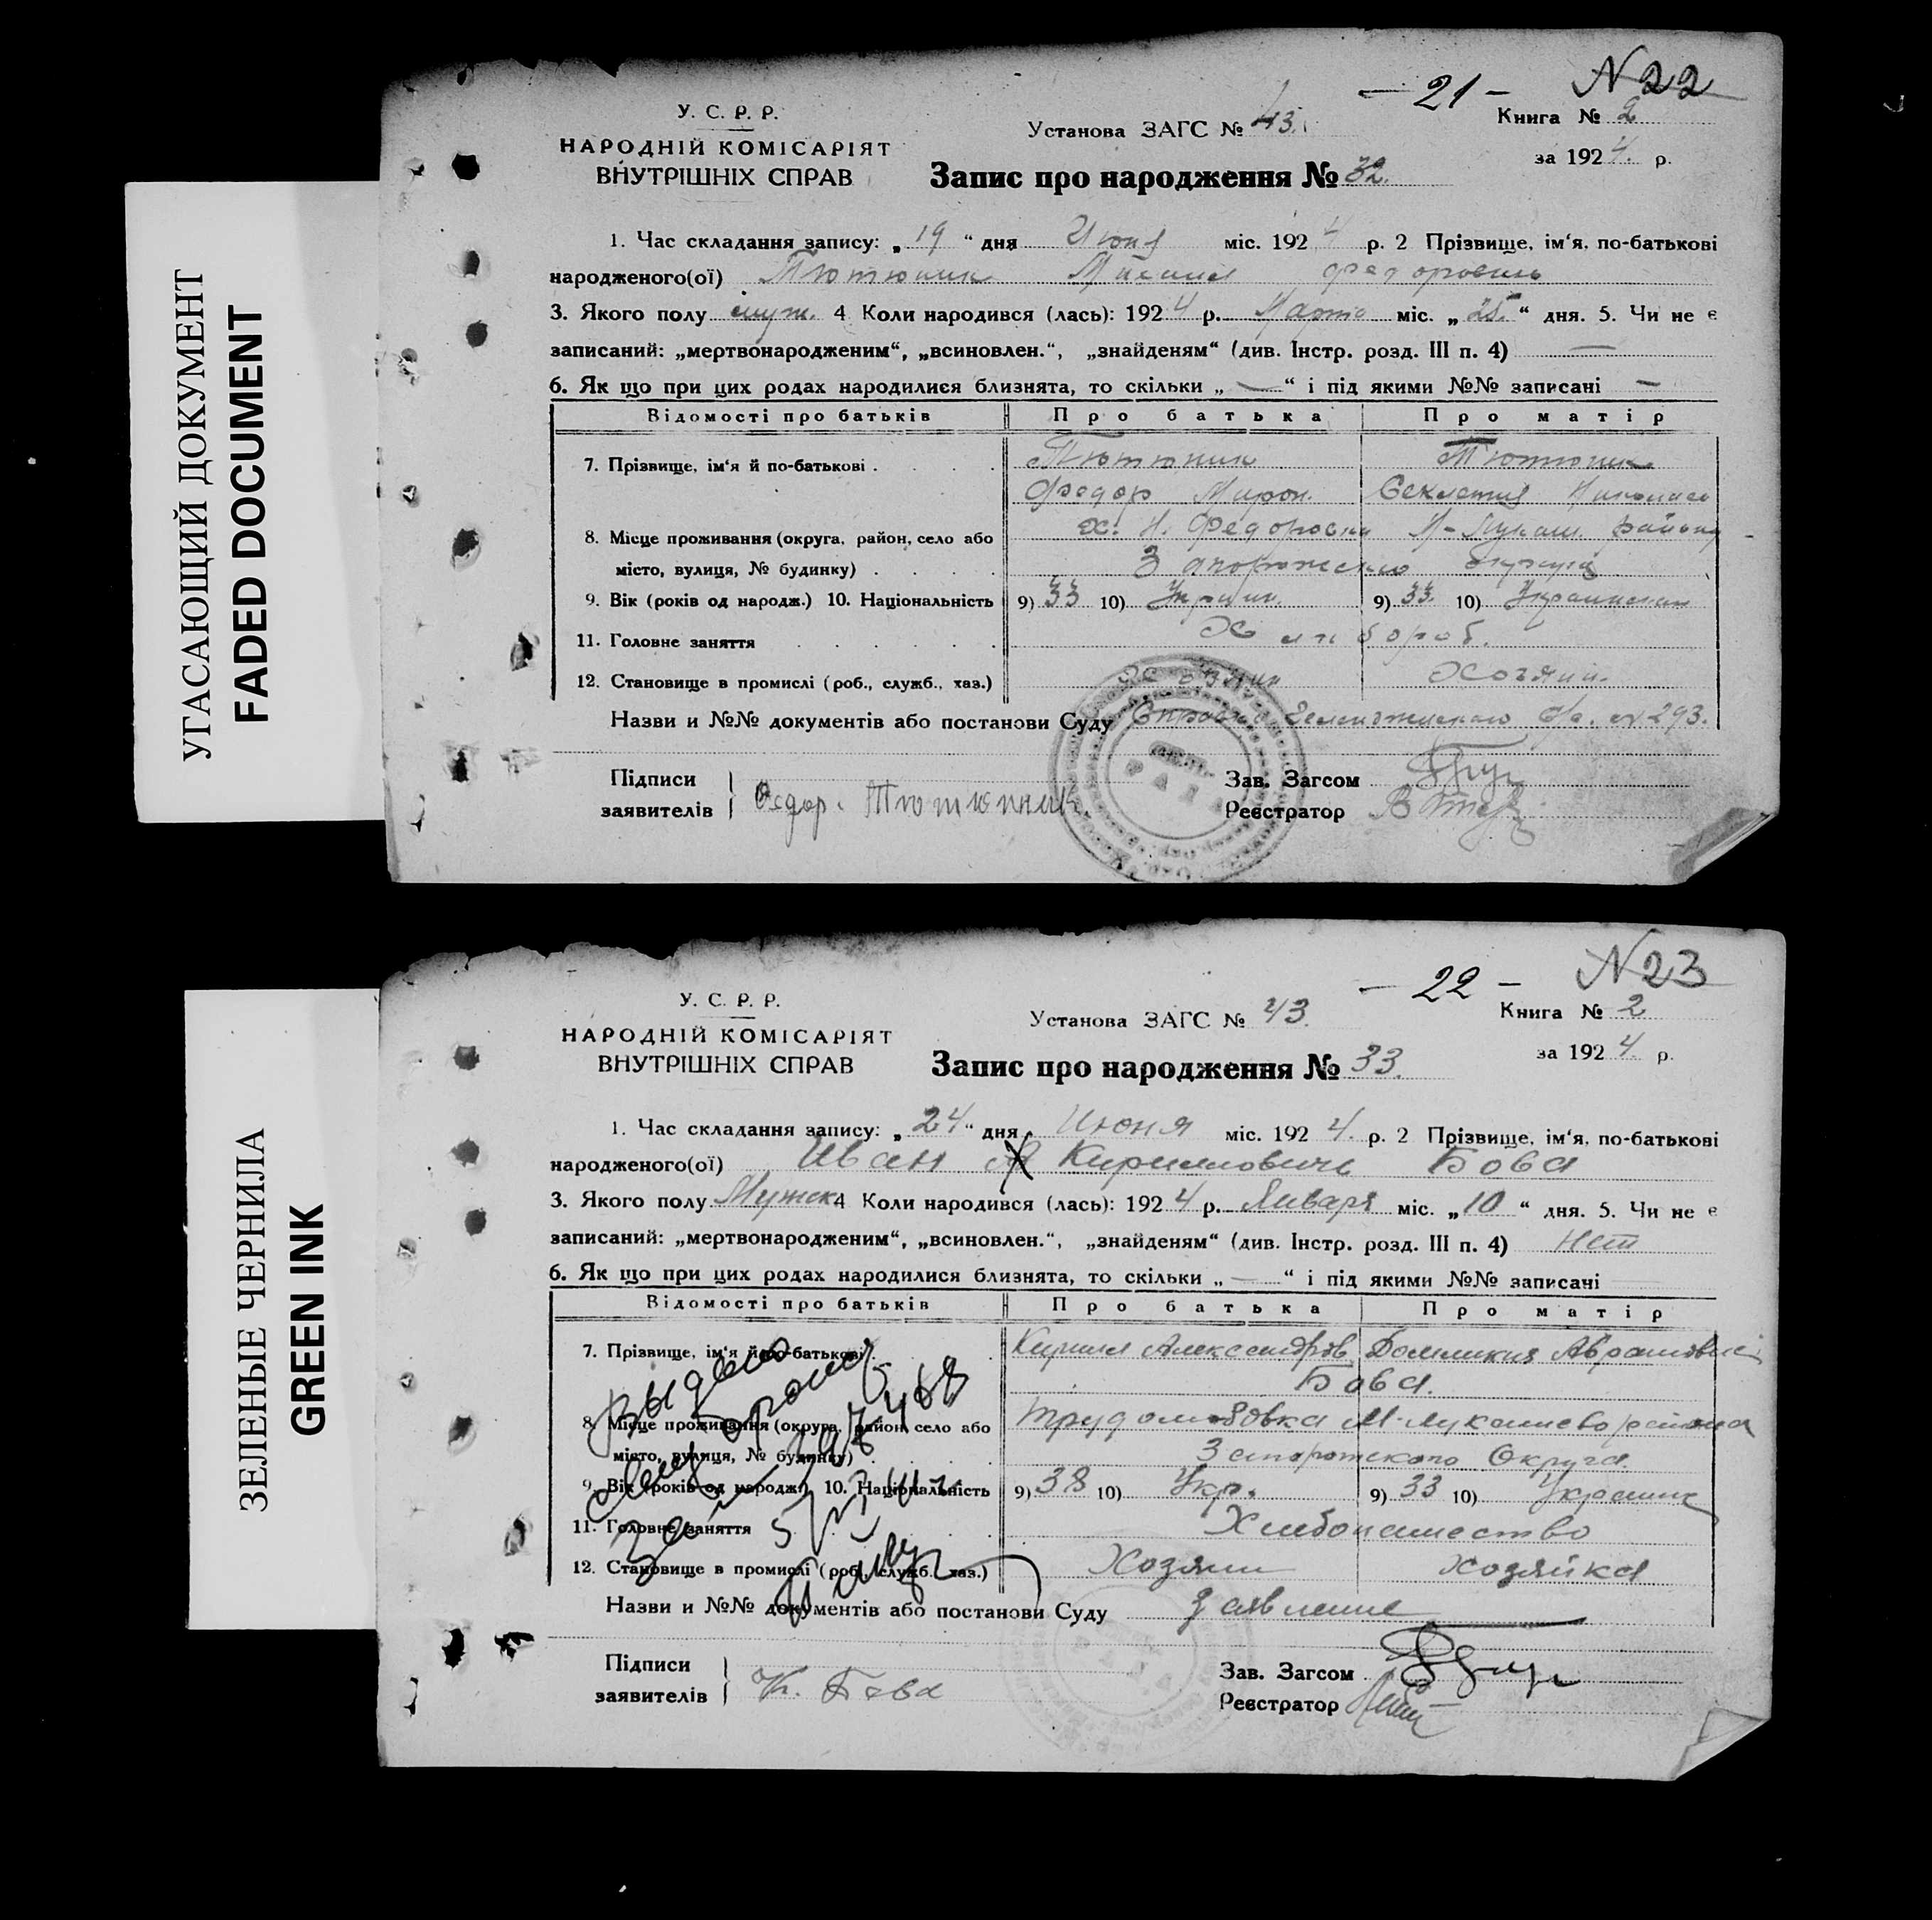 УГАСАЮЩИЙ ДОКУМЕНТ
FADED DOCUMENT
- 21 - N 22
У. С. Р. Р.
НАРОДНІЙ КОМІСАРІЯТ
ВНУТРІШНІХ СПРАВ
Установа ЗАГС № 43.
Книга № 2
за 1924. р.
Запис про народження № 32.
1. Час складання запису: „19“ дня Июня міс. 1924 р. 2 Прізвище, ім‘я, по-батькові
народженого(ої) Тютюник Михаил Федорович
3. Якого полу муж. 4 Коли народився (лась): 1924 р. Марта міс. „25“ дня. 5. Чи не є
записаний: „мертвонародженим“, „всиновлен.“, „знайденям“ (див. Інстр. розд. III п. 4) —
6. Як що при цих родах народилися близнята, то скільки „—“ і під якими №№ записані —
Відомості про батьків Про батька Про матір
7. Прізвище, ім‘я й по-батькові . Тютюник Тютюник
Федор Мирон.
8. Місце проживання (округа, район, село або х. Н. Федоровки района
місто, вулиця, № будинку) . Запорожского округа
9. Вік (років од народж.) 10. Національність 9) 33 10) Украин. 9) 33. 10)
11. Головне заняття . Хлибороб.
12. Становище в промислі (роб., служб., хаз.) Хозяин Хозяин.
Назви и №№ документів або постанови Суду 293.
Підписи
заявителів } Федор. Тютюнник.
Зав. Загсом
Реєстратор
ЗЕЛЕНЫЕ ЧЕРНИЛА
GREEN INK
- 22 - N 23
У. С. Р. Р.
НАРОДНІЙ КОМІСАРІЯТ
ВНУТРІШНІХ СПРАВ
Установа ЗАГС № 43.
Книга № 2
за 1924. р.
Запис про народження № 33.
1. Час складання запису: „24“ дня Июня міс. 1924. р. 2 Прізвище, ім‘я, по-батькові
народженого(ої) Иван Кириллович Бова
3. Якого полу Мужск 4 Коли народився (лась): 1924 р. Января міс. „10“ дня. 5. Чи не є
записаний: „мертвонародженим“, „всиновлен.“, „знайденям“ (див. Інстр. розд. III п. 4) Нет
6. Як що при цих родах народилися близнята, то скільки „—“ і під якими №№ записані
Відомості про батьків Про батька Про матір
7. Прізвище, ім‘я й по-батькові . Кирилл Александров Домникия Абрамовна
Бова.
8. Місце проживання (округа, район, село або Трудолюбовка района
місто, вулиця, № будинку) . Запорожского Округа.
9. Вік (років од народж.) 10. Національність 9) 38 10) Укр. 9) 33 10)
11. Головне заняття . Хлебопашество
12. Становище в промислі (роб., служб., хаз.) Хозяин хозяйка
Назви и №№ документів або постанови Суду Заявление
Выдано
Підписи
заявителів } К. Бова
Зав. Загсом
Реєстратор